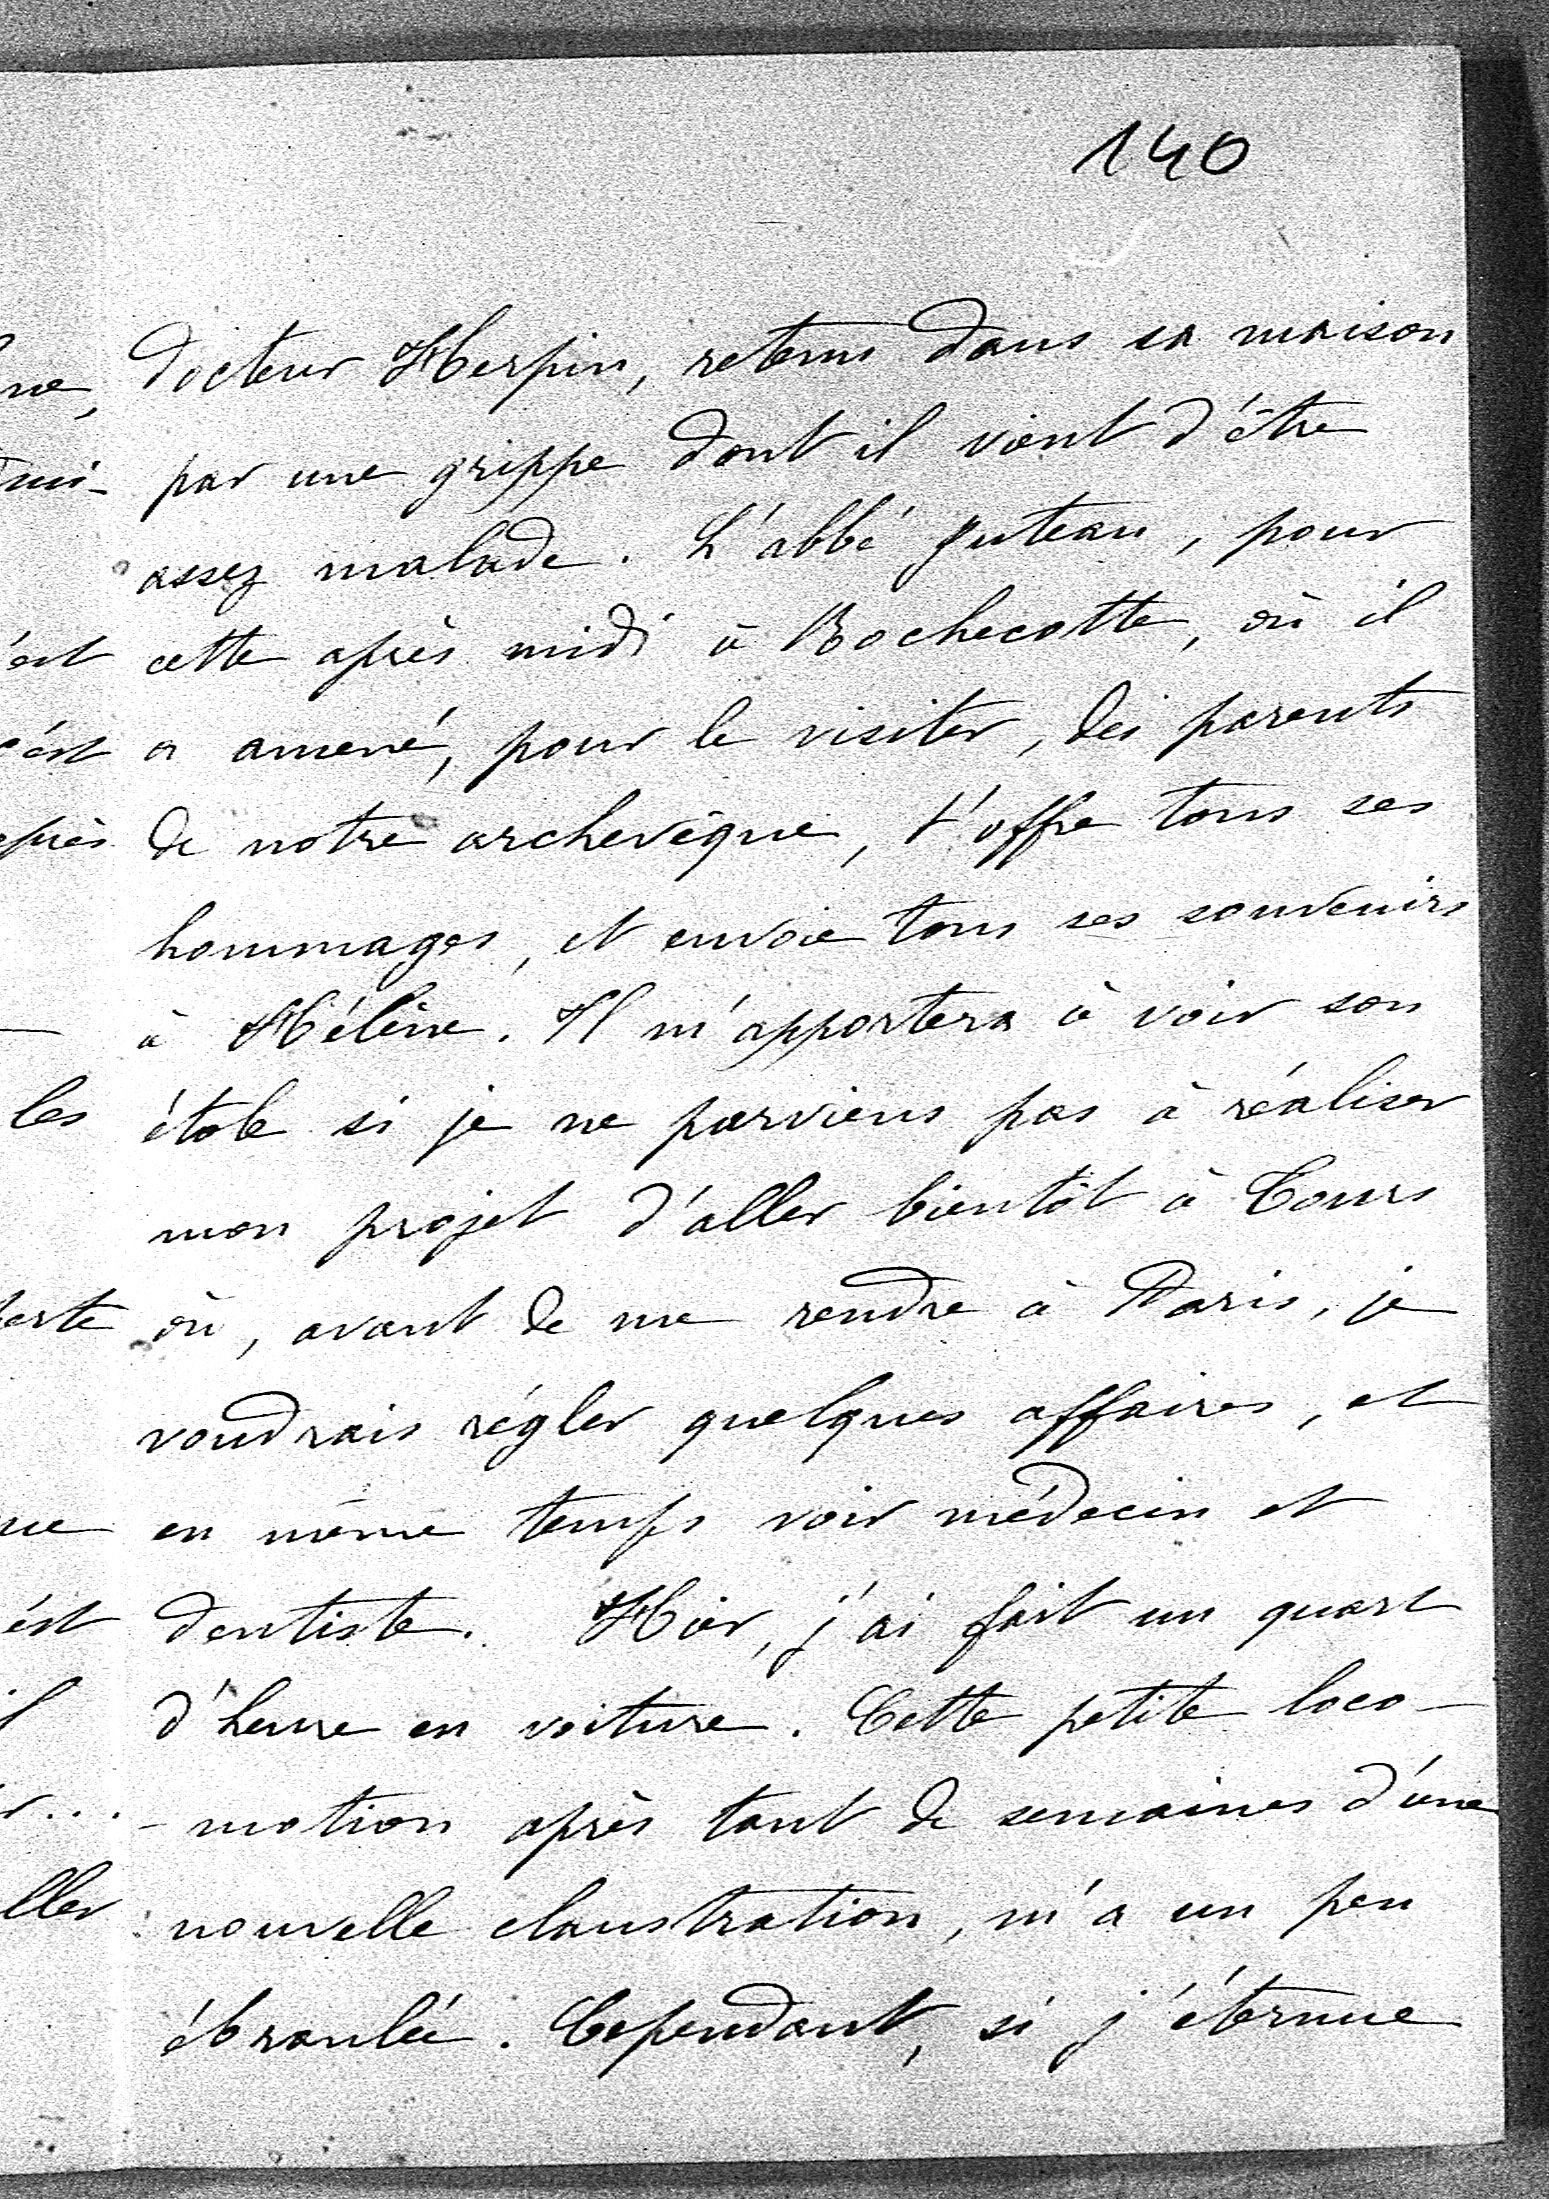 140
docteur Herpin, retenu dans sa maison
par une grippe dont il vient d'être
assez malade. L'abbé Juteau, pour
cette après midi à Rochecotte, où il
a amené, pour le visiter, des parents
de notre archevêque, t'offre tous ses
hommages, et envoie tous ses souvenirs
à Hélène. Il m'apportera à voir son
étole si je ne parviens pas à réaliser
mon projet d'aller bientôt à Tours
où, avant de me rendre à Paris, je
voudrais régler quelques affaires, et
en même temps voir médecin et
dentiste. Hier, j'ai fait un quart
d'heure en voiture. Cette petite loco-
-motion après tant de semaines d'une
nouvelle claustration, m'a un peu
ébranlée. Cependant, si j'éternue